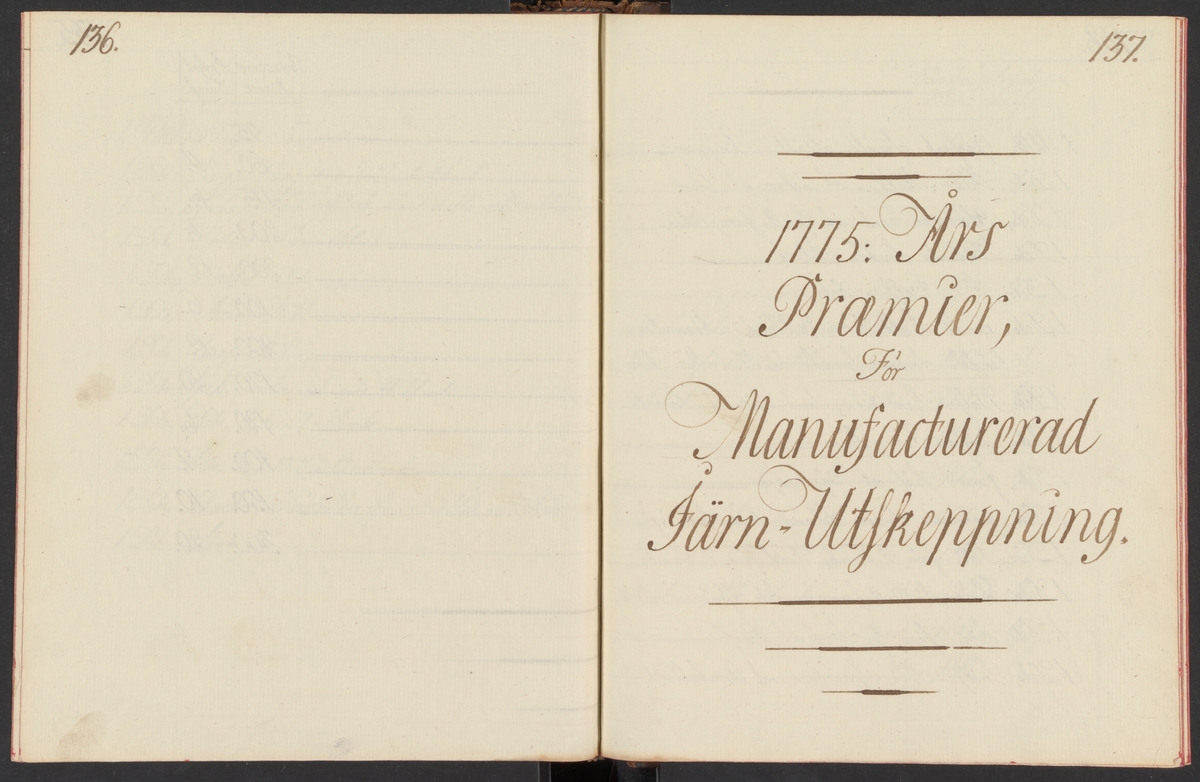 136.
137.
1775: Års
Præmier,
För
Manufacturerad
Järn-Utskeppning.